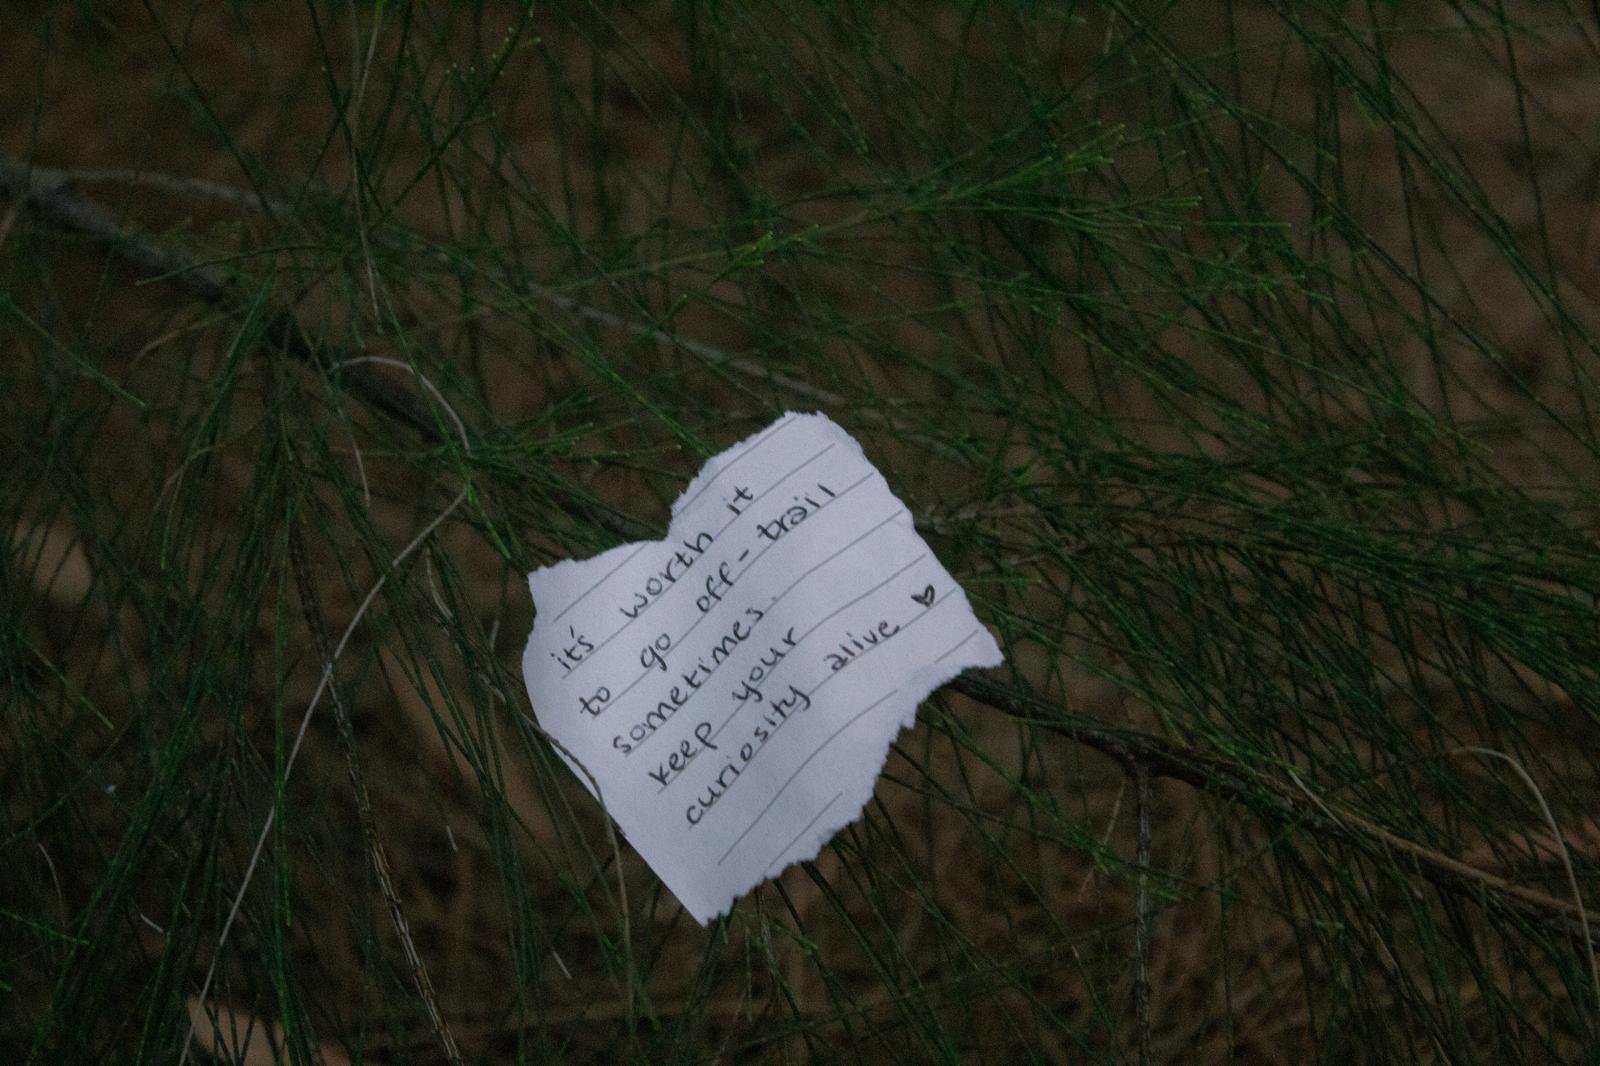 it's worth it
to go off-trail
sometimes.
keep your
curiosity alive ♥